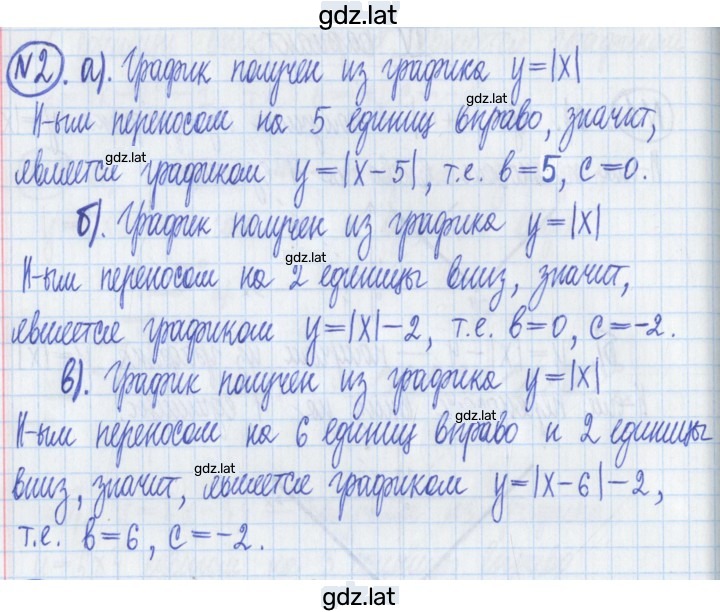 gdz.lat
№2. а). График получен из графика y=|x|
gdz.lat
II-ым переносом на 5 единиц вправо, значит,
gdz.lat
является графиком y=|x-5|, т.е. b=5, c=0.
б). График получен из графика y=|x|
gdz.lat
II-ым переносом на 2 единицы вниз, значит,
является графиком y=|x|-2, т.е. b=0, c=-2.
в). График получен из графика y=|x|
gdz.lat
II-ым переносом на 6 единиц вправо и 2 единицы
gdz.lat
вниз, значит, является графиком y=|x-6|-2,
т.е. b=6, c=-2.
gdz.lat
gdz.lat